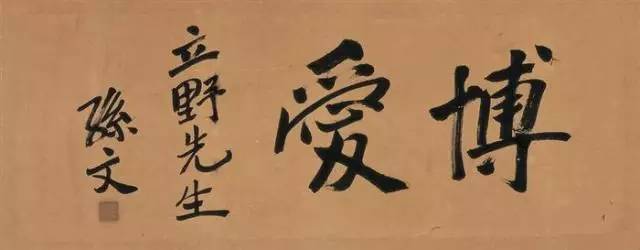 博愛
立野先生
孫文